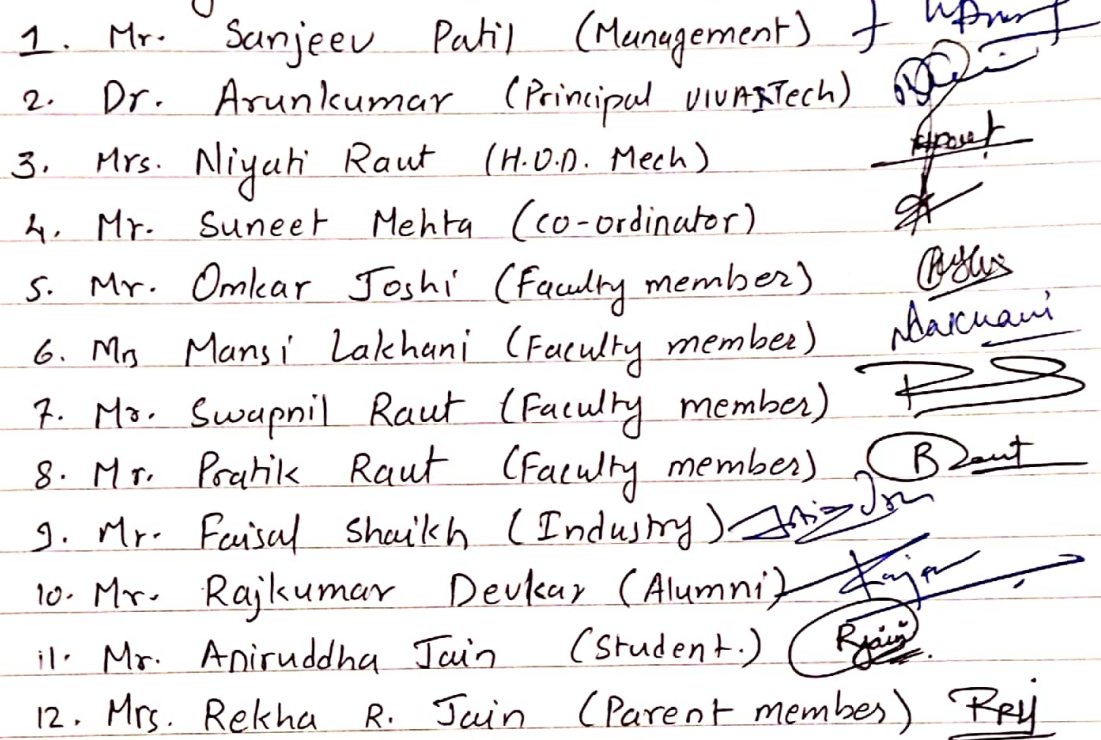 1. Mr. Sanjeev Patil (Management)
2. Dr. Arunkumar (Principal VIVA Tech)
3. Mrs. Niyati Raut (H.O.D. Mech)
4. Mr. Suneet Mehta (co-ordinator)
5. Mr. Omkar Joshi (Faculty member)
6. Mrs Mansi Lakhani (Faculty member) Lakhani
7. Mr. Swapnil Raut (Faculty member)
8. Mr. Pratik Raut (Faculty member)
9. Mr. Faisal Shaikh (Industry)
10. Mr. Rajkumar Devkar (Alumni)
11. Mr. Aniruddha Jain (Student.) RJain
12. Mrs. Rekha R. Jain (Parent member) RRJ